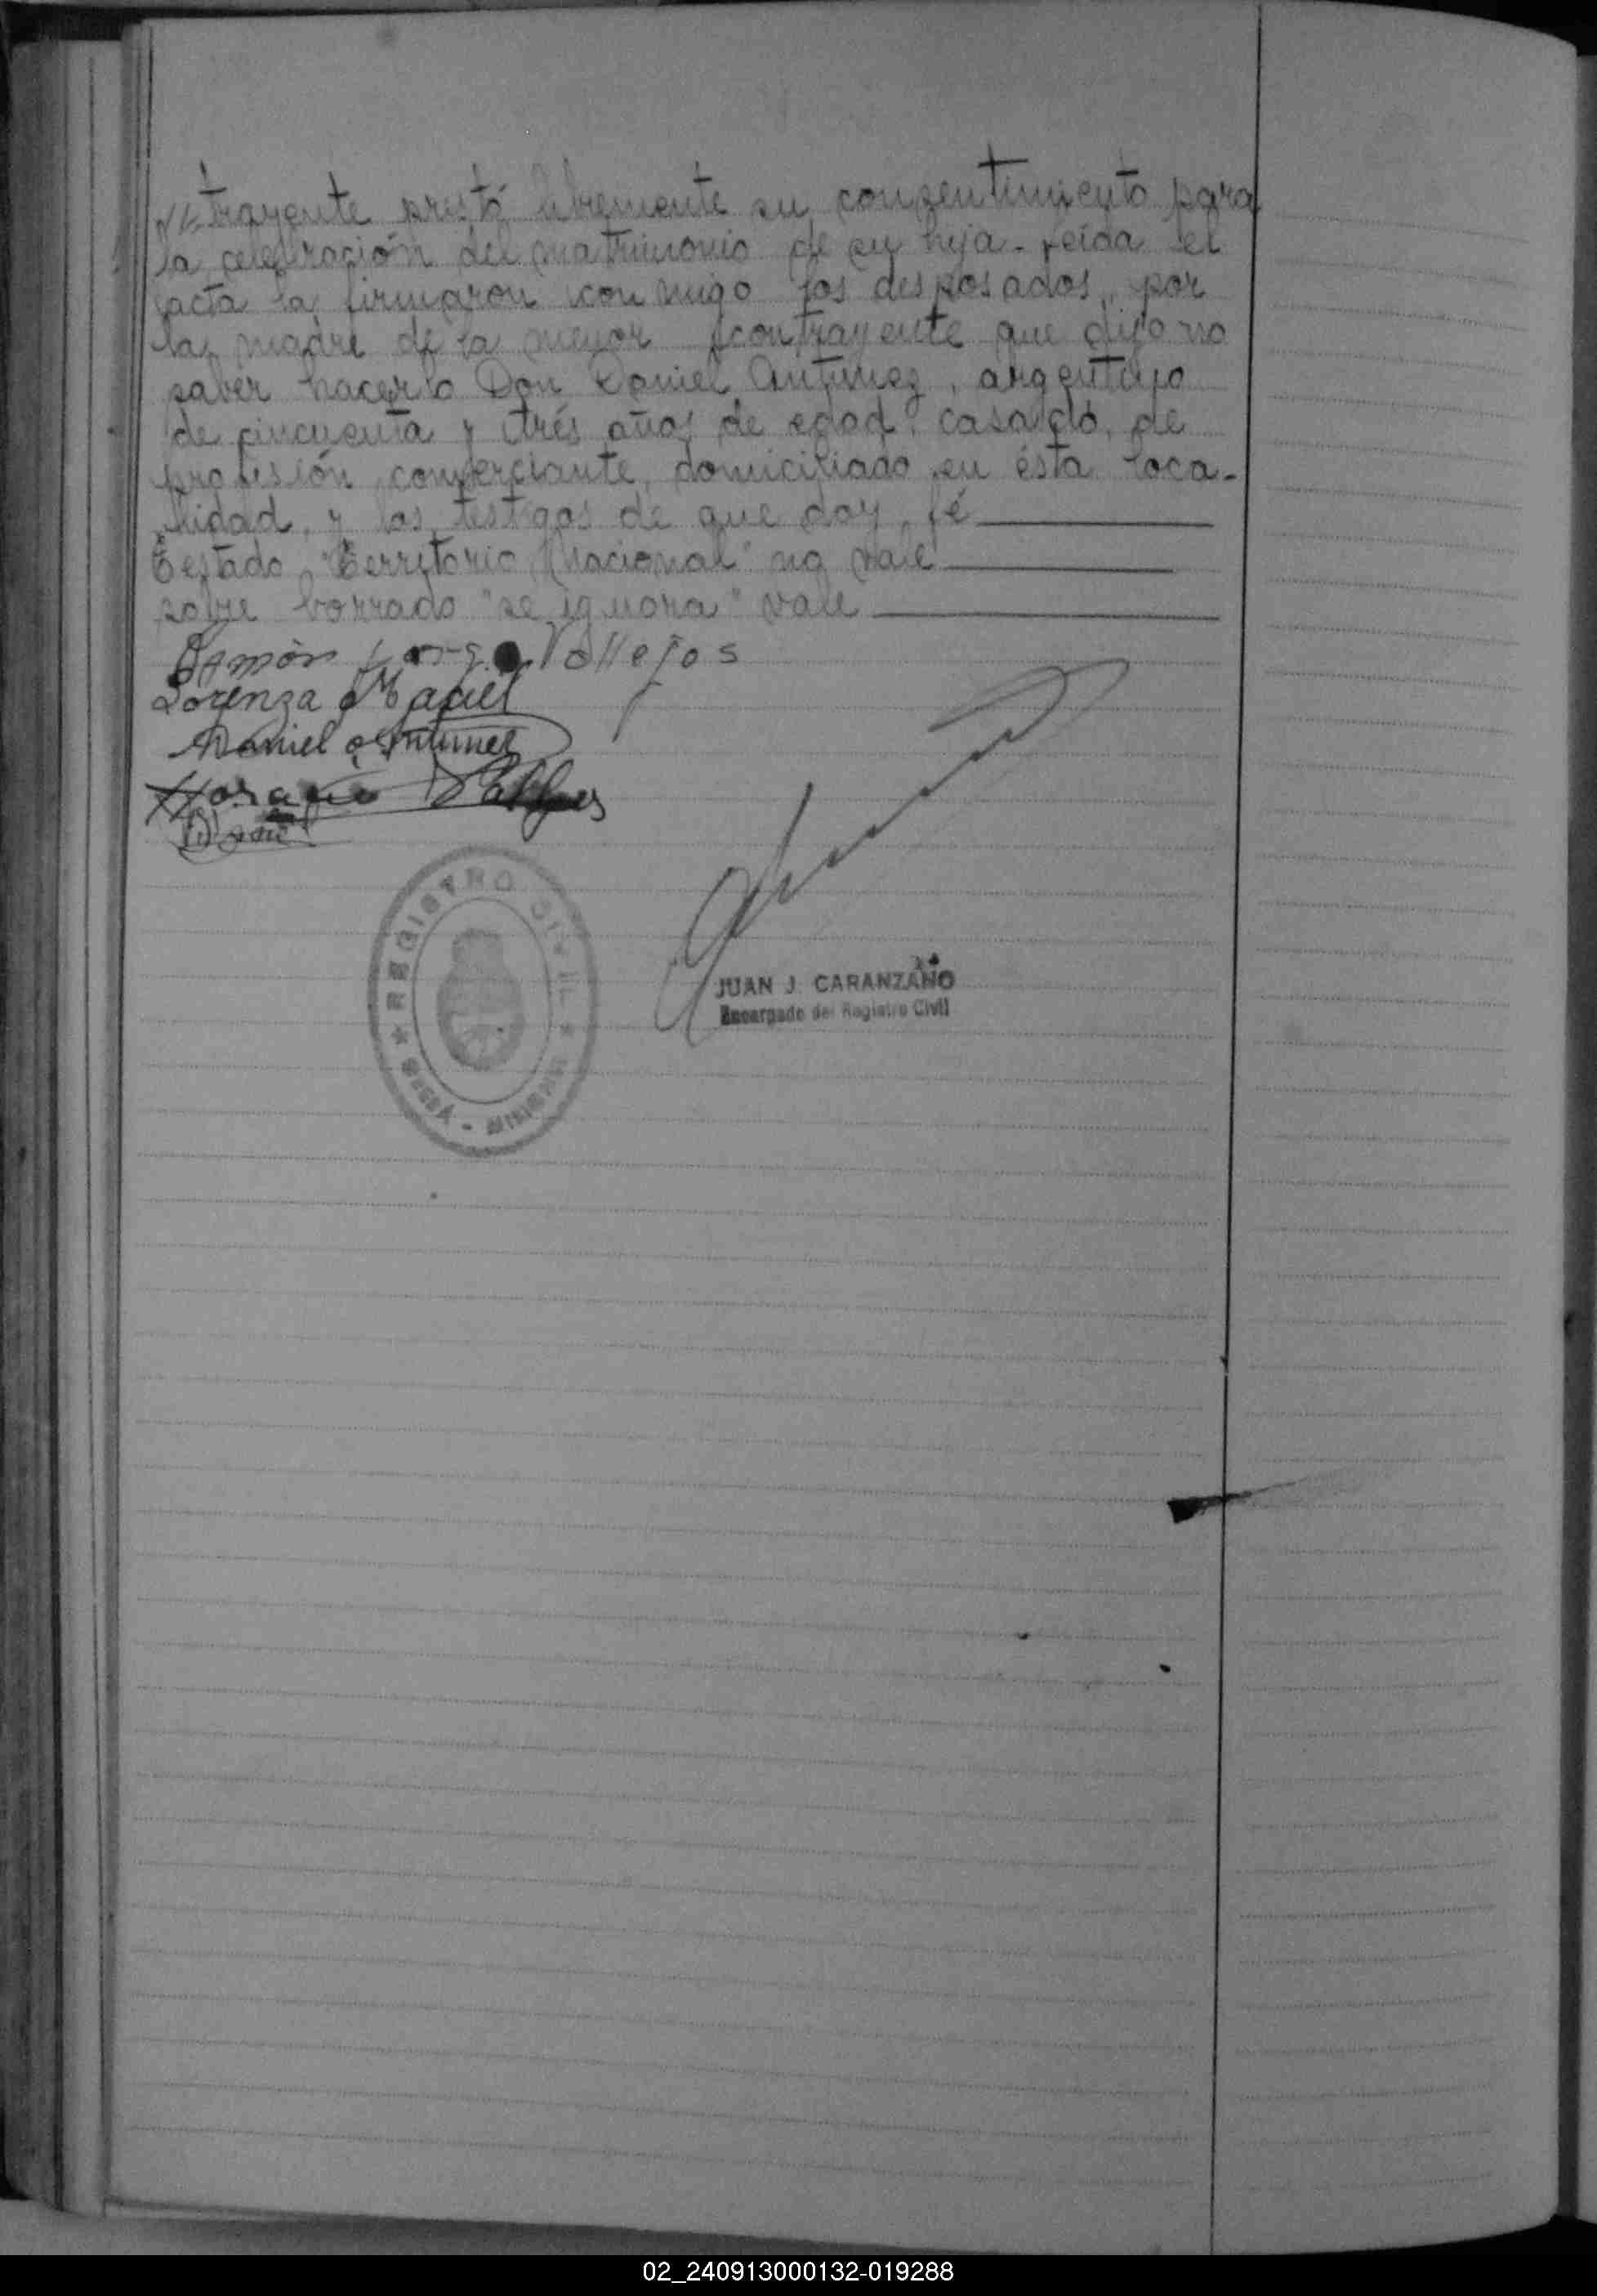 trayente prestó libremente su consentimiento para
la celebración del matrimonio de su hija - Leída el
acta la firmaron conmigo los desposados, por
la madre de la menor contrayente que dijo no
saber hacerlo Don Daniel Antunez, argentino
de cincuenta y trés años de edad, casado, de
profesión comerciante, domiciliado en ésta loca-
lidad, y los testigos de que doy fé
Testado "Territorio Nacional" no vale
sobre borrado "se ignora" vale
Ramón Vallejos
Lorenza Maciel
Daniel Antunez
REGISTRO CIVIL
MISIONES
JUAN J. CARANZANO
Encargado del Registro Civil
02_240913000132-019288